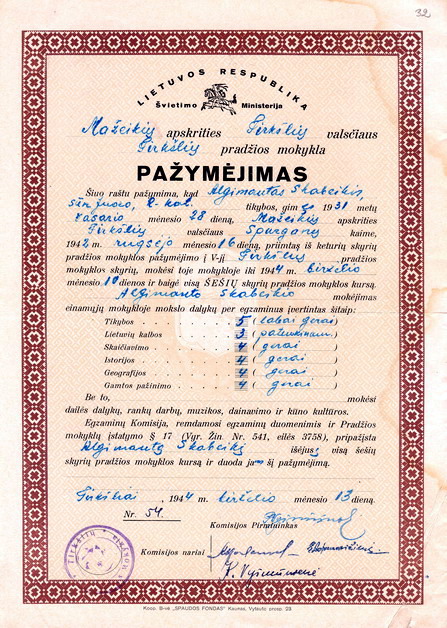 32
LIETUVOS RESPUBLIKA
Švietimo Ministerija
Mažeikių apskrities Tirkšlių valsčiaus
Tirkšlių pradžios mokykla
PAŽYMĖJIMAS
Šiuo raštu pažymima, kad Algimantas Skabeikis,
sūnus, R. kat. tikybos, gim 1931 metų
vasario mėnesio 28 dieną, Mažeikių apskrities
Tirkšlių valsčiaus Spurganų kaime,
1942 m. rugsėjo mėnesio 16 dieną, priimtas iš keturių skyrių
pradžios mokyklos pažymėjimo į V-jį Tirkšlių pradžios
mokyklos skyrių, mokėsi toje mokykloje iki 1944 birželio
mėnesio 10 dienos ir baigė visą ŠEŠIŲ skyrių pradžios mokyklos kursą.
Algimanto Skabeikio mokėjimas
einamųjų mokykloje mokslo dalykų per egzaminus įvertintas šitaip:
Tikybos 5 (labai gerai)
Lietuvių kalbos 3 (patenkinam.)
Skaičiavimo 4 (gerai)
Istorijos 4 (gerai)
Geografijos 4 (gerai)
Gamtos pažinimo 4 (gerai)
Be to, mokėsi
dailės dalykų, rankų darbų, muzikos, dainavimo ir kūno kultūros.
Egzaminų Komisija, remdamosi egzaminų duomenimis ir Pradžios
mokyklų įstatymo § 17 (Vyr. Žin. Nr. 541, eilės 3758), pripažįsta
Algimantą Skabeikį išėjus visą šešių
skyrių pradžios mokyklos kursą ir duoda jam šį pažymėjimą.
Tirkšliai, 1944 m. birželio mėnesio 13 dieną.
Nr. 54.
Komisijos Pirmininkas
Komisijos nariai
K. Vyšniauskienė
Koop. B-vė „SPAUDOS FONDAS" Kaunas, Vytauto prosp. 23